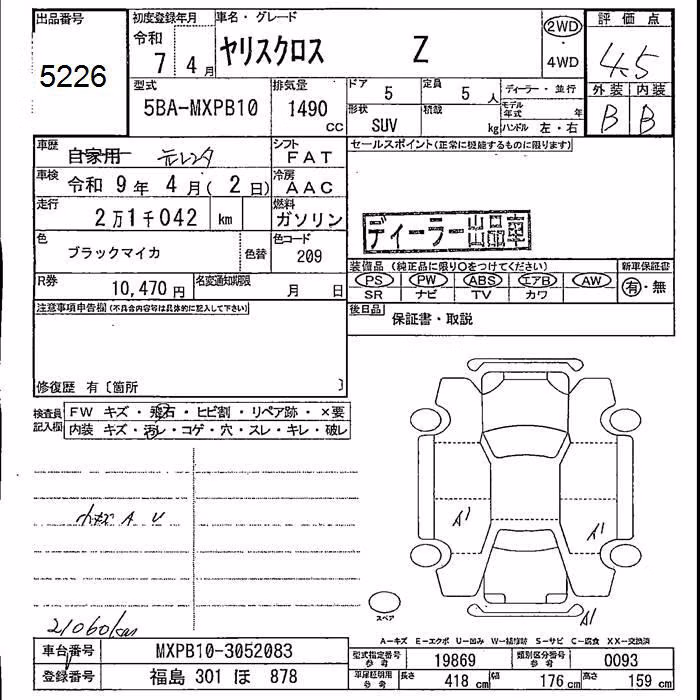 出品番号
5226
初度登録年月
令和
7年 4月
車名・グレード
ヤリスクロス Z
2WD
・
4WD
評価点
4.5
外装 内装
B B
型式
5BA-MXPB10
排気量
1490
cc
ドア
5
定員
5 人
ディーラー・並行
形状
SUV
積載
kg
モデル年式 年
ハンドル 左・右
車歴
自家用 元レンタ
シフト
FAT
車検
令和 9年 4月(2日)
冷房
AAC
走行
2万1千042 km
燃料
ガソリン
色
ブラックマイカ
色替
色コード
209
R券
10,470円
名変通知期限
月 日
セールスポイント(正常に機能するものに限ります)
ディーラー出品車
装備品(純正品に限り○をつけてください)
新車保証書
PS PW ABS エアB AW
有・無
SR ナビ TV カワ
後日品
保証書・取説
注意事項申告欄(不具合内容等は具体的に記入して下さい)
修復歴 有〔箇所 〕
検査員記入欄
FW キズ・飛石・ヒビ割・リペア跡・×要
内装 キズ・汚レ・コゲ・穴・スレ・キレ・破レ
小キズ A U
A1 A1
A1
スペア
21060km
A-キズ E-エクボ U-凹み W-補修跡 S-サビ C-腐食 XX-交換済
車台番号
MXPB10-3052083
登録番号
福島 301 ほ 878
型式指定番号
参考
19869
類別区分番号
参考
0093
車庫証明用
参考
長さ
418 cm
幅
176 cm
高さ
159 cm